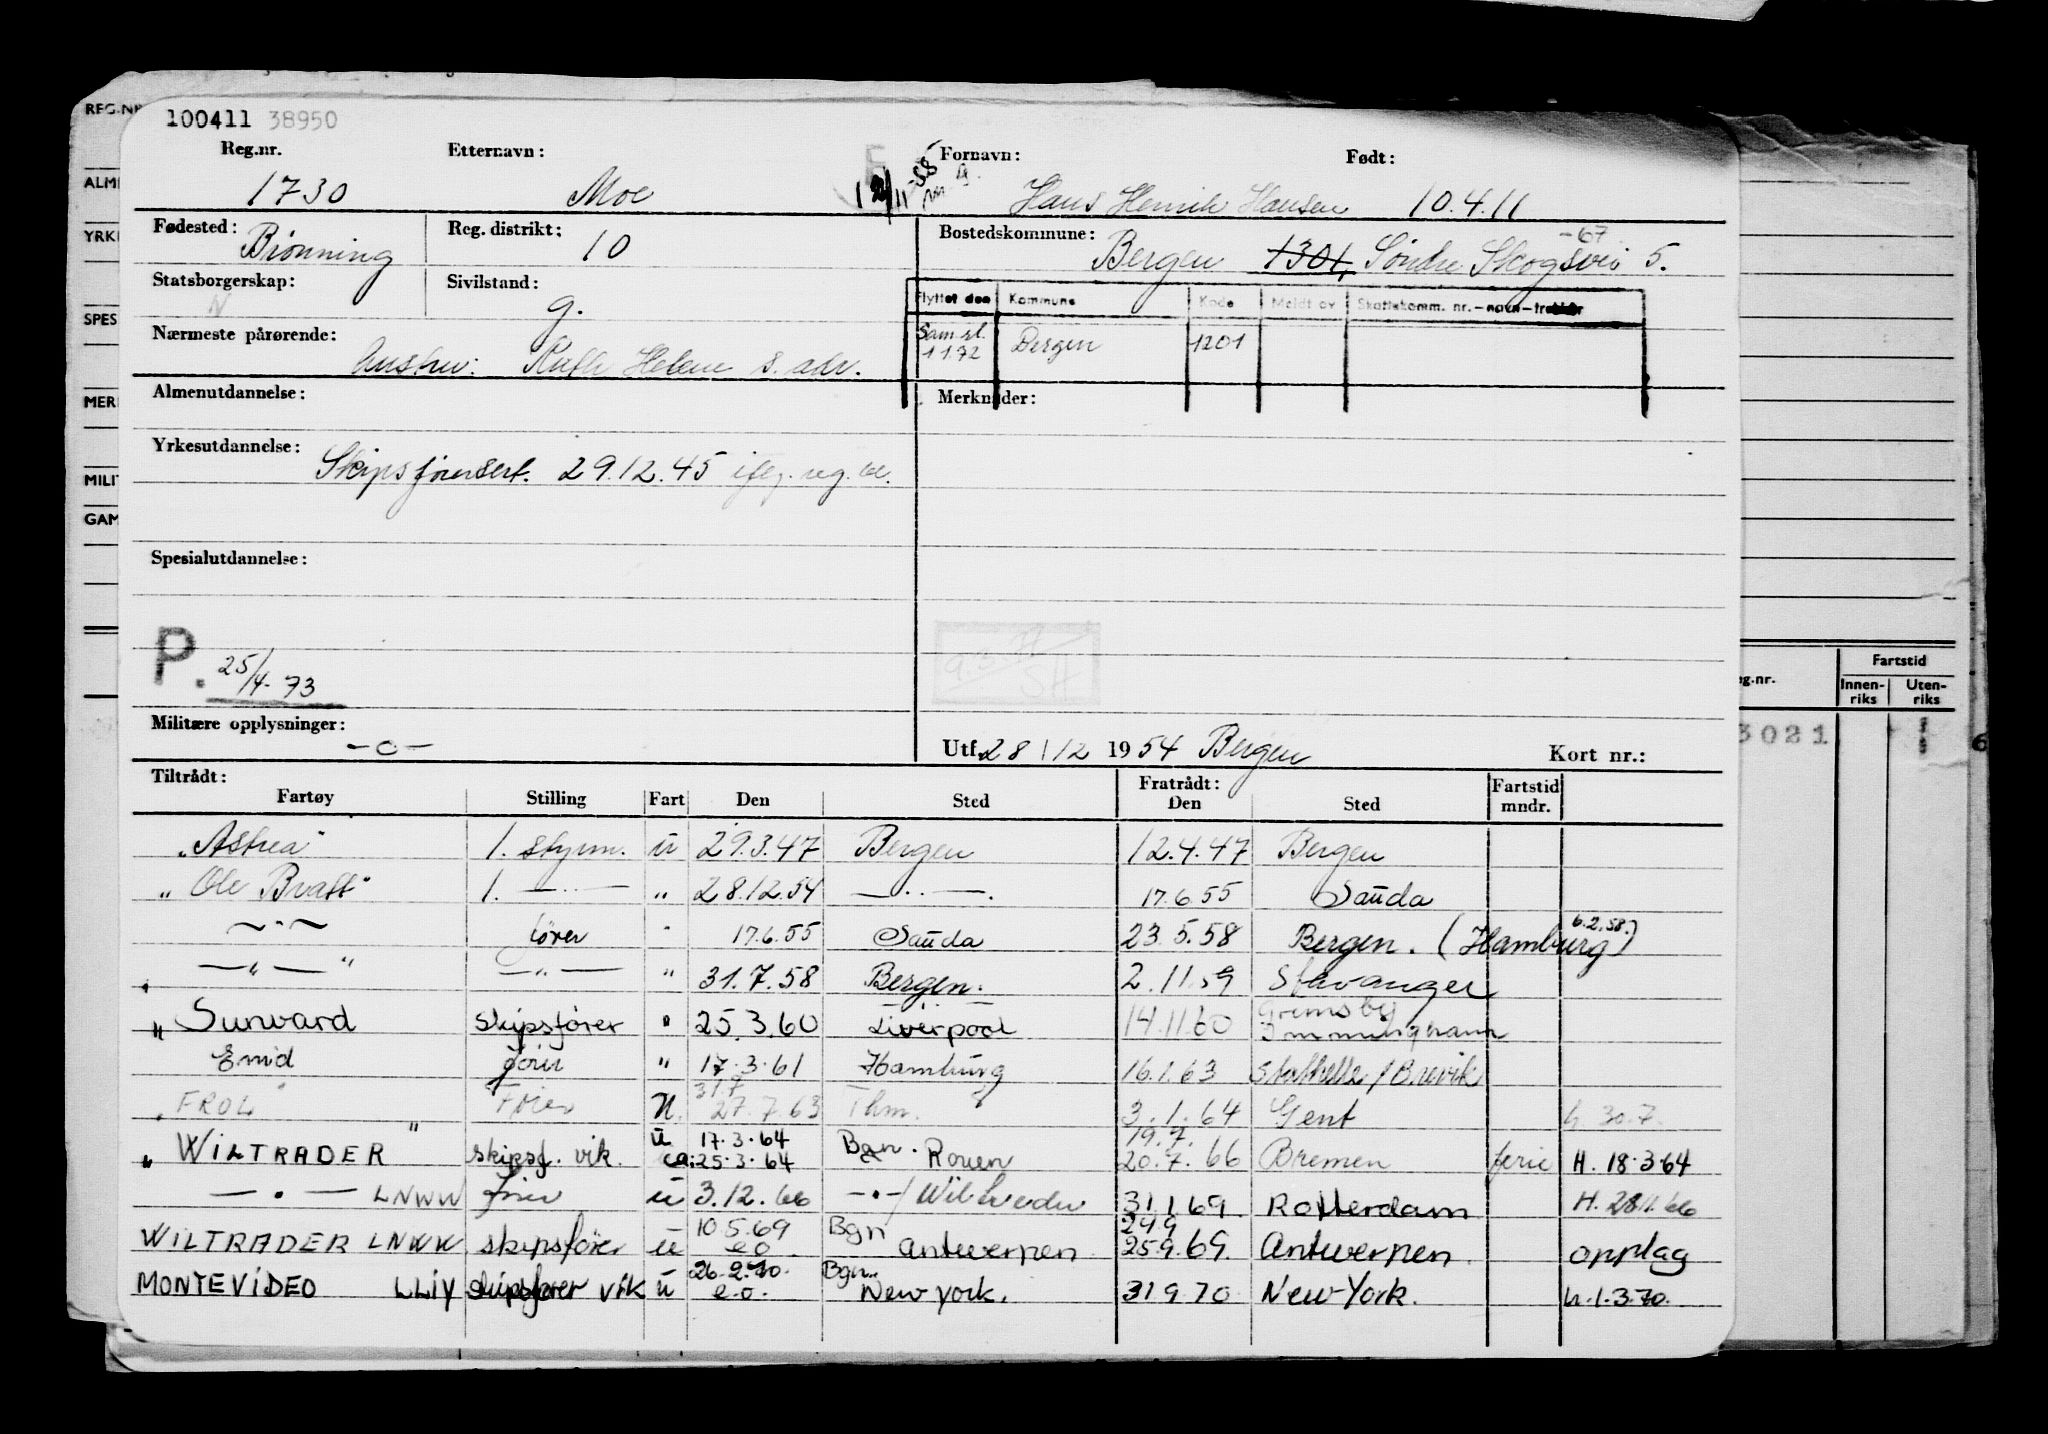 100411 38950
Reg.nr. Etternavn: Fornavn: Født:
1730 Moe Hans Henrik Hansen 10.4.11
Fødested: Brønning Reg. distrikt: 10 Bostedskommune: Bergen 1301, Søndre Skogsvei 5. -67
Statsborgerskap: N Sivilstand: g.
Flyttet den Kommune Kode Meldt av Skattekomm. nr.-navn-trekkfr
Sam.sl. 1172 Bergen 1201
Nærmeste pårørende: Hustru: Ruth Helene s. adr.
Almenutdannelse: Merknader:
Yrkesutdannelse: Skipsførersert. 29.12.45 iflg. reg. bl.
Spesialutdannelse:
P. 25/4-73
Militære opplysninger: -o-
Utf. 28/12 1954 Bergen Kort nr.:
Tiltrådt: Fratrådt:
Fartøy Stilling Fart Den Sted Den Sted Fartstid mndr.
"Astrea" 1. styrm. u 29.3.47 Bergen 12.4.47 Bergen
"Ole Bratt" 1. —"— " 28.12.54 —"—. 17.6.55 Sauda
—"— fører " 17.6.55 Sauda 23.5.58 Bergen. (Hamburg 6.2.58.)
—"—" —"— " 31.7.58 Bergen. 2.11.59 Stavanger
" Sunward skipsfører " 25.3.60 Liverpool 14.11.60 Grimsby Immingham
Enid fører " 17.3.61 Hamburg 16.1.63 Stathelle/Brevik
"FROL" Fører N. 31.7 27.7.63 Thm. 3.1.64 Gent h. 30.7.
" WILTRADER" skipsf. vik. u ca: 17.3.64 25.3.64 Bgn. Rouen 19.7. 20.7.66 Bremen ferie H. 18.3.64
—"— LNWW fører u 3.12.66 —"—/Wiltrader 31.1.69 Rotterdam H. 28.11.66
WILTRADER LNWW skipsfører u 10.5.69 e.o Bgn Antwerpen 24.9 25.9.69. Antwerpen opplag
MONTEVIDEO LLIY skipsfører vik u 26.2.70. e.o. Bgn. New York. 31 9 70 New York. h.1.3.70.
REG.NR
ALM
YRK
SPES
MER
MILIT
GAM
eg.nr. Fartstid
Innenriks Utenriks
3021
6